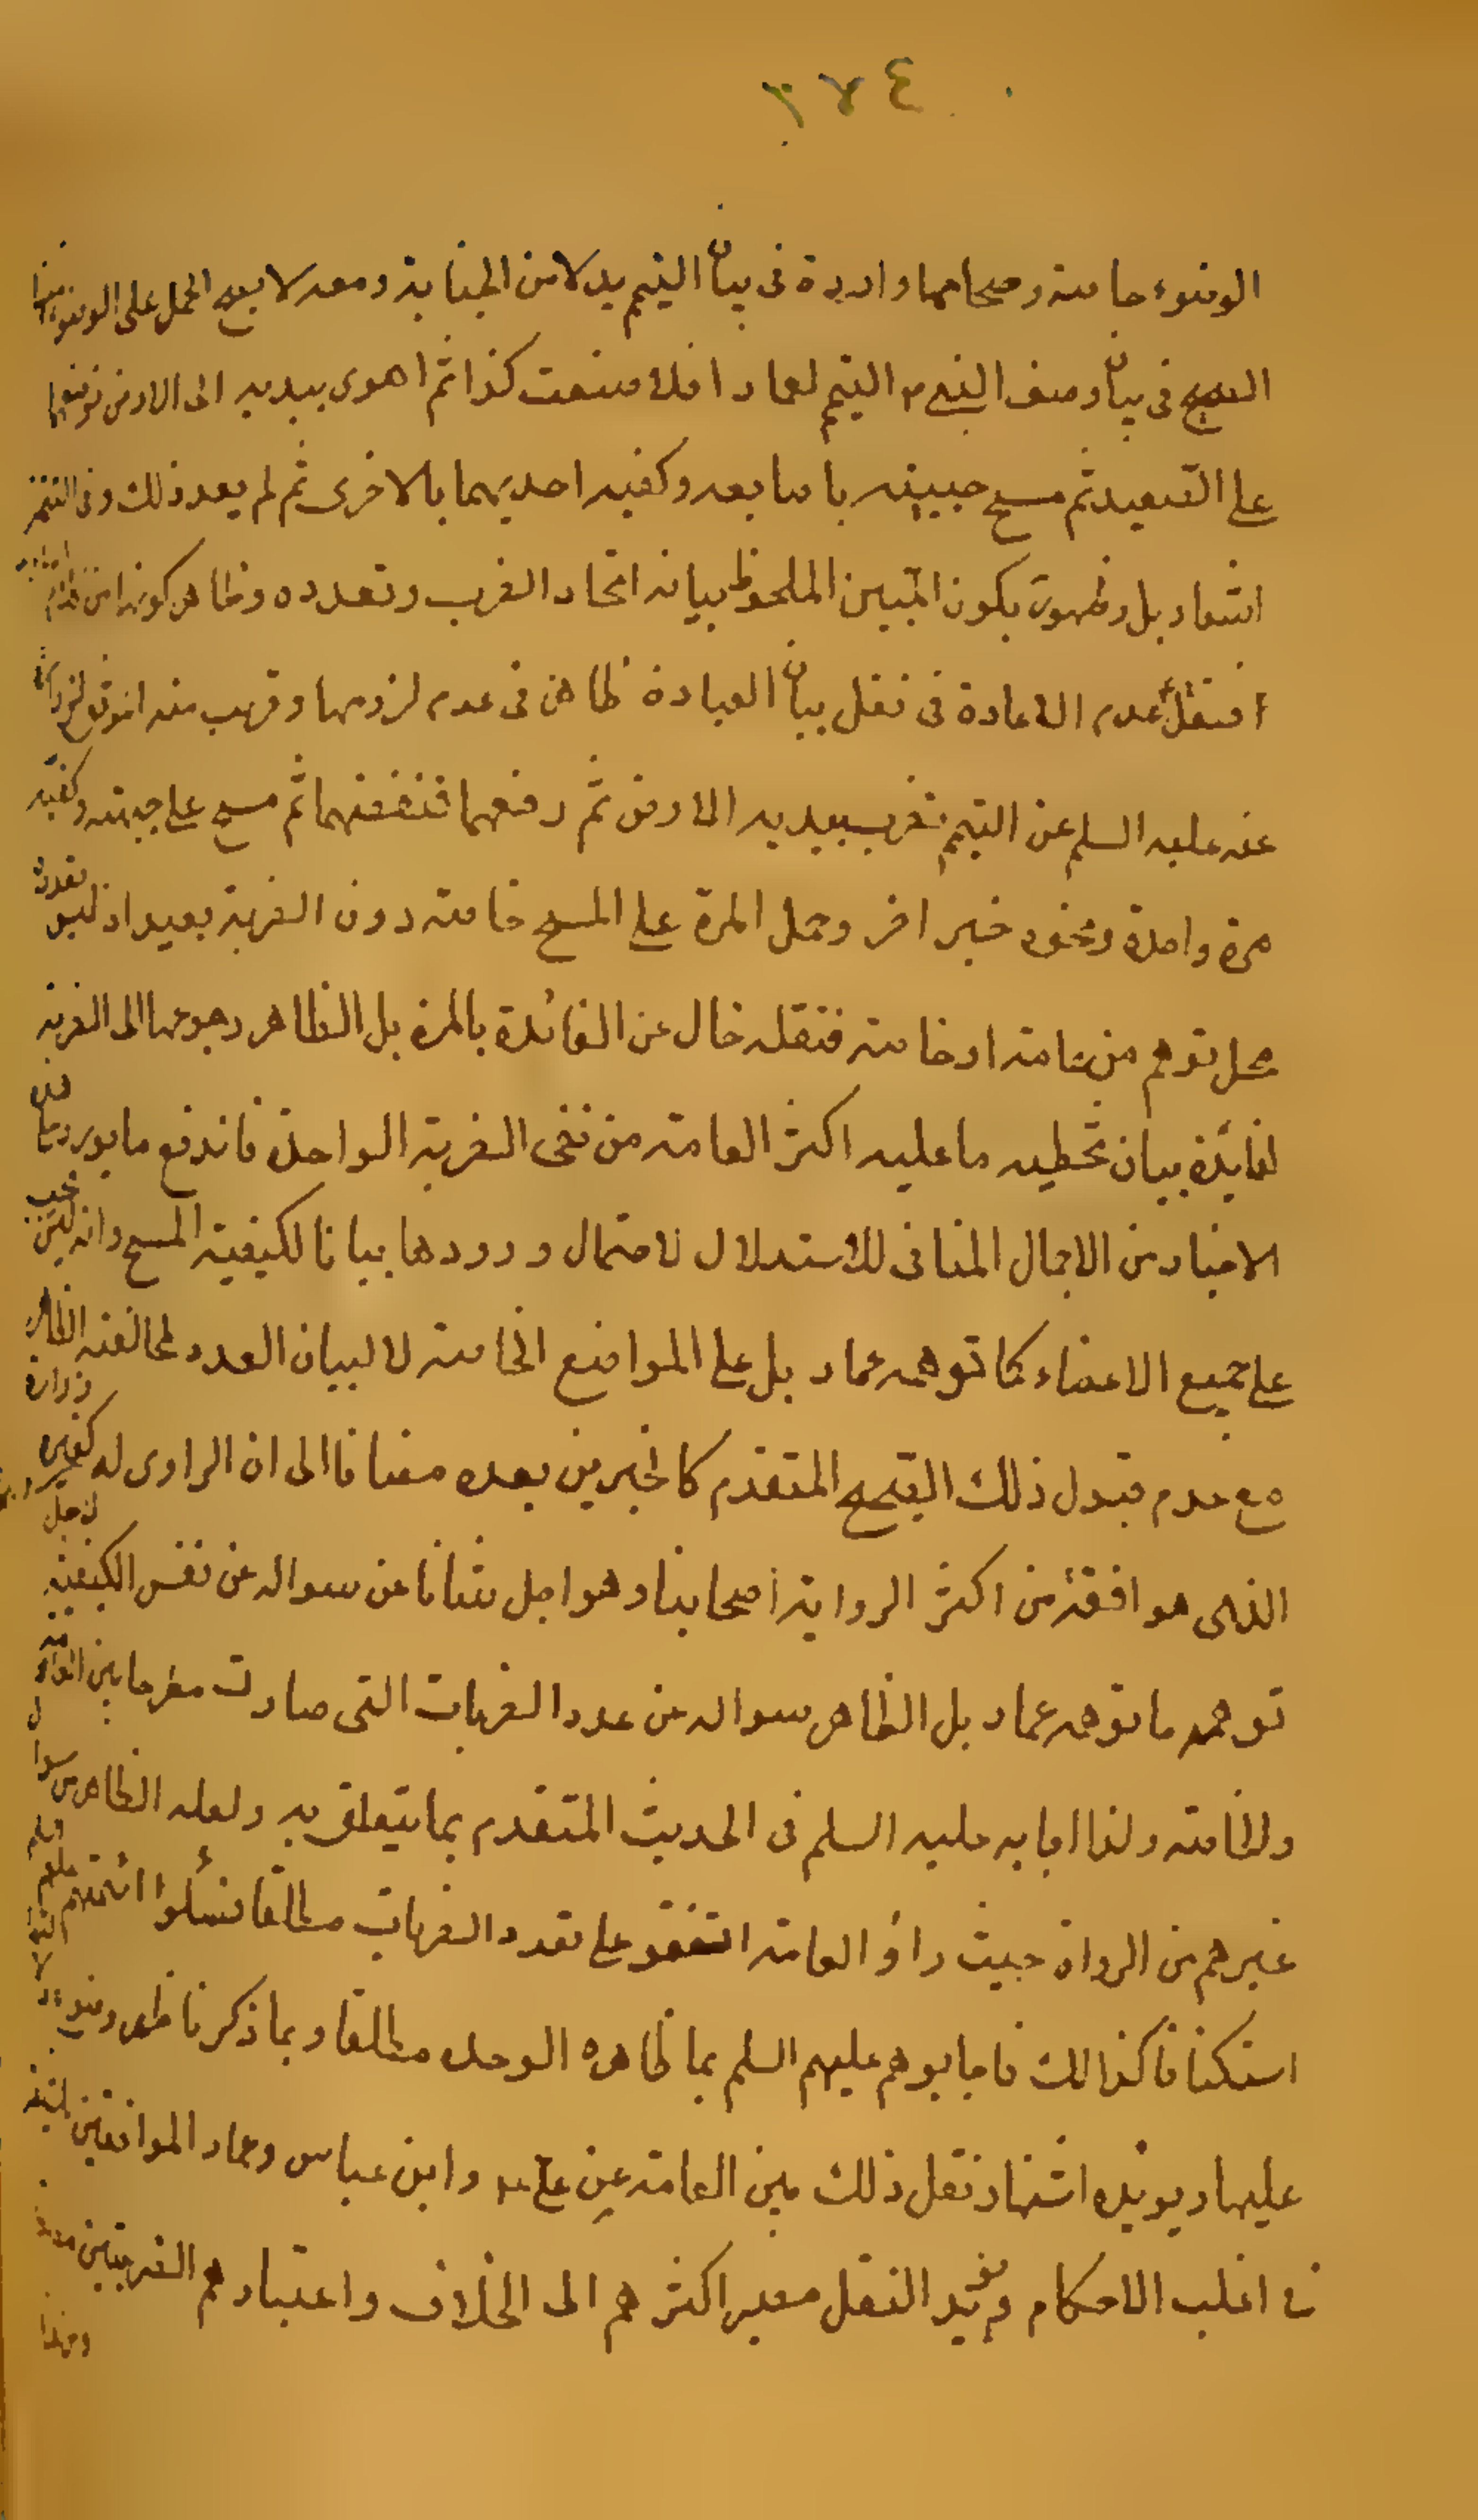 ٢٧٤
الوضوء خاصة وصحاحها واردة فى بيان التيمم بدلا من الجنابة ومعه لا يصح الحمل على الوضوء
الصحيح فى بيان وصف النبى ص التيمم لعمار افلا صنعت كذا ثم اهوى بيديه الى الارض فوضعهما
على الصعيد ثم مسح جبينه باصابعه وكفيه احديهما بالاخرى ثم لم يعد ذلك وفى
اشعار بل وظهور بكون المبين الملحوظ بيانه اتحاد الضرب وتعدده وظاهر كونه
عدم الاعادة فى نقل بيان العبادة ظاهر فى عدم لزومها وقريب منه الموثق
عنه عليه السلم عن التيمم فضرب بيديه الارض ثم رفعهما فنفضهما ثم مسح على جبهته وكفيه
مرة واحدة ونحوه خبر اخر وحمل المرة على المسح خاصة دون الضربة بعيد اذ ليس تعدده
محل توهم من عامة او خاصة فنقله خال عن الفائدة بالمرة بل الظاهر رجوعها الى الضربة
لفائدة بيان تخطيه ما عليه اكثر العامة من نفى الضربة الواحدة فاندفع ما يورد على هذه
الاخبار من الاجمال المنافى للاستدلال لاحتمال ورودها بيانا لكيفية المسح وانه ليس يجب
على جميع الاعضاء كما توهمه عمار بل على المواضع الخاصة لا لبيان العدد لمخالفته الظاهر
مع عدم قبول ذلك الصحيح المتقدم كالخبرين بعده مضافا الى ان الراوى له كغيره زرارة
الذى هو افقه من اكثر الرواية اصحابنا وهو اجل شانا عن سواله عن نفس الكيفية لاجل
توهمه ما توهمه عمار بل الظاهر سواله عن عدد الضربات التى صارت مطرحا بين العامة
والخاصة ولذا اجابه عليه السلم فى الحديث المتقدم بما يتعلق به ولعله الظاهر من سوال
غيرهم من الرواة حيث راوا العامة اتفقو على تعدد الضربات مطلقا فسئلوا ائمتهم عليهم السلم
استكشافا لذلك فاجابوهم عليهم السلم بما ظاهره الوحدة مطلقا وبما ذكرنا ظهر وضوح
عليها ويؤيده اشتهار نقل ذلك بين العامة عن على ع وابن عباس وعمار الموافقين
فى اغلب الاحكام ومع النقل مصير اكثرهم الى الخلاف واعتبارهم الضربتين
وهذا